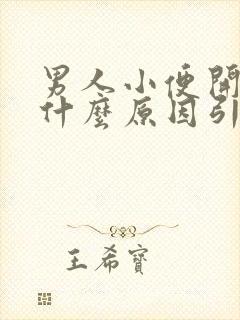 男人小便開
什麼原因引
王希寶